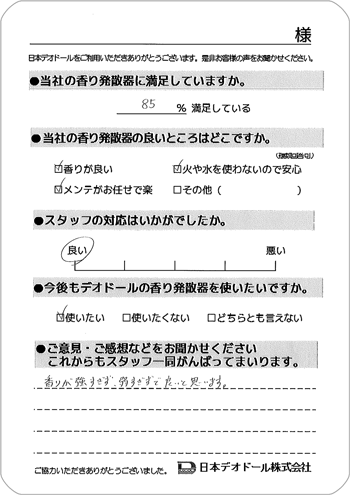 様
日本デオドールをご利用いただきありがとうございます。是非お客様の声をお聞かせください。
●当社の香り発散器に満足していますか。
85 % 満足している
●当社の香り発散器の良いところはどこですか。
(複数回答可)
☑香りが良い ☑火や水を使わないので安心
☑メンテがお任せで楽 □その他（ ）
●スタッフの対応はいかがでしたか。
良い 悪い
●今後もデオドールの香り発散器を使いたいですか。
☑使いたい □使いたくない □どちらとも言えない
●ご意見・ご感想などをお聞かせください
これからもスタッフ一同がんばってまいります。
香りが強すぎず、弱すぎずで良いと思います。
ご協力いただきありがとうございました。 日本デオドール株式会社